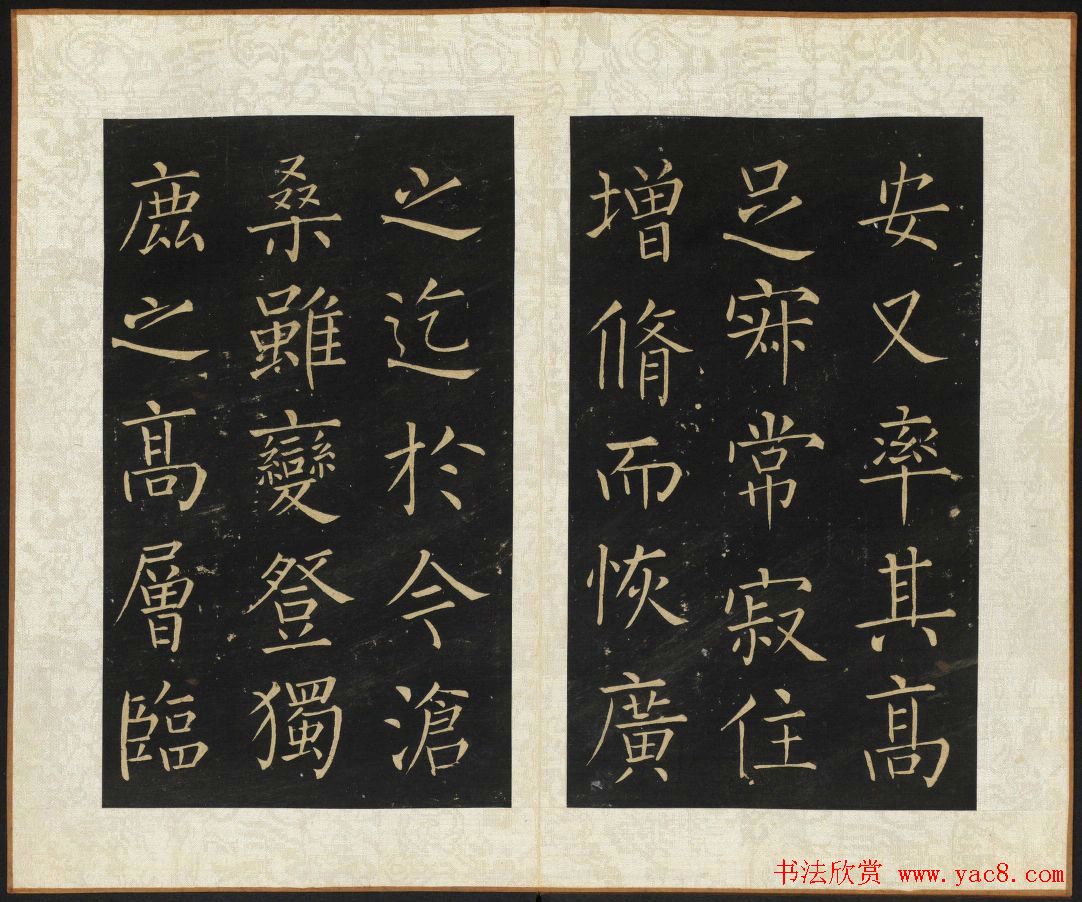 安又率其髙
足常寂住
增脩而恢廣
之迄於今滄
桑雖變登獨
鹿之髙層臨
书法欣赏 www.yac8.com